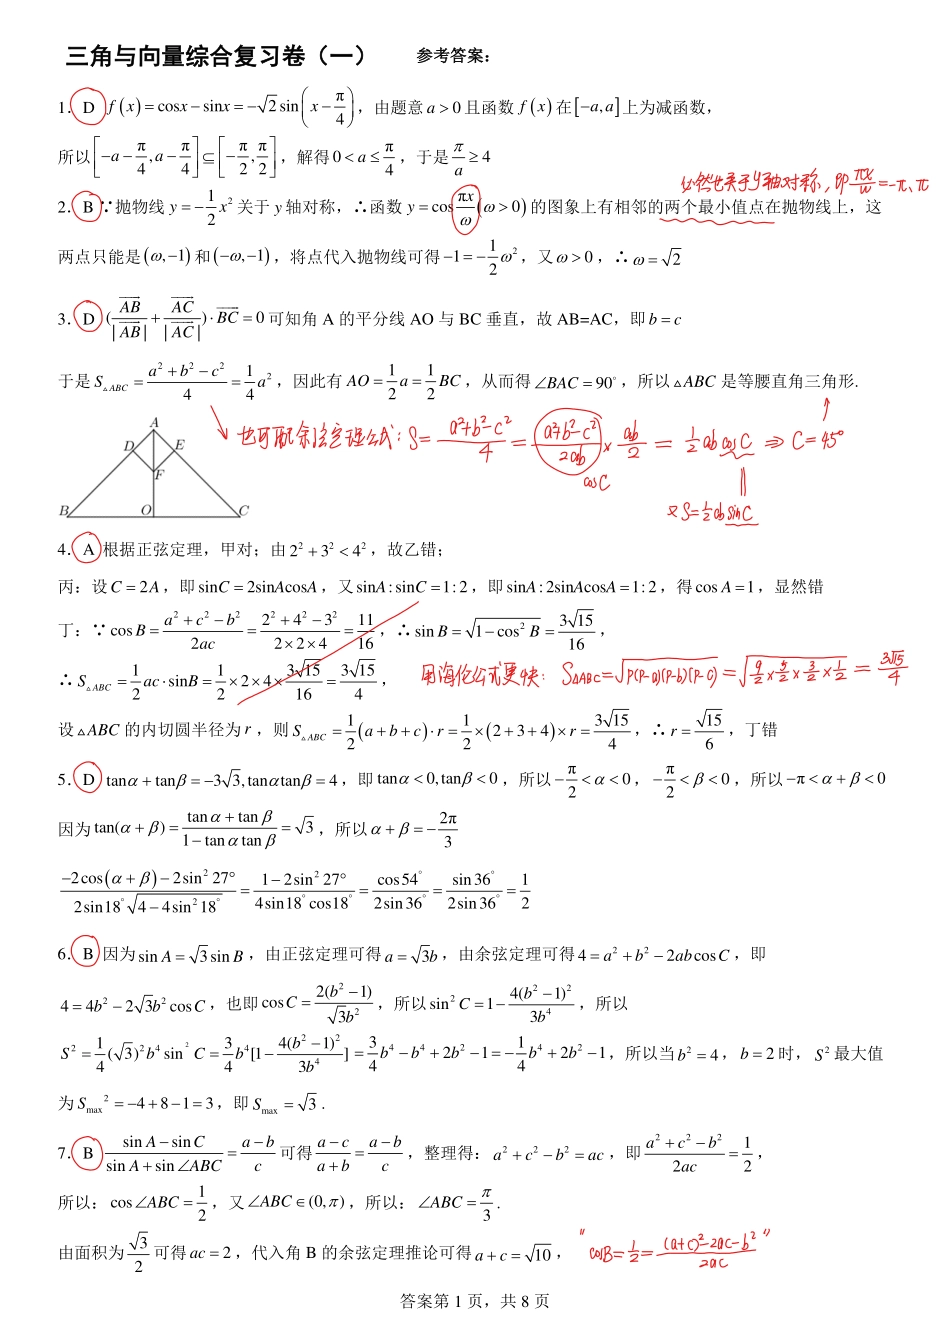 三角与向量综合复习卷（一） 参考答案：
1．D f(x)=cosx−sinx=−√2sin(x−π/4)，由题意a>0且函数f(x)在[−a,a]上为减函数，
所以[−a−π/4,a−π/4]⊆[−π/2,π/2]，解得0<a≤π/4，于是π/a≥4
仍然也关于y轴对称，即πx/ω=−π、π
2．B∵抛物线y=−1/2x²关于y轴对称，∴函数y=cosπx/ω(ω>0)的图象上有相邻的两个最小值点在抛物线上，这
两点只能是(ω,−1)和(−ω,−1)，将点代入抛物线可得−1=−1/2ω²，又ω>0，∴ω=√2
3．D (AB/|AB|+AC/|AC|)·BC=0可知角A的平分线AO与BC垂直，故AB=AC，即b=c
于是S△ABC=(a²+b²−c²)/4=1/4a²，因此有AO=1/2a=1/2BC，从而得∠BAC=90°，所以△ABC是等腰直角三角形.
也可配余弦定理公式：S=(a²+b²−c²)/4=(a²+b²−c²)/2ab×ab/2=1/2abcosC⇒C=45°
cosC
又S=1/2absinC
A
D E
F
B O C
4．A 根据正弦定理，甲对；由2²+3²<4²，故乙错；
丙：设C=2A，即sinC=2sinAcosA，又sinA:sinC=1:2，即sinA:2sinAcosA=1:2，得cosA=1，显然错
丁：∵cosB=(a²+c²−b²)/2ac=(2²+4²−3²)/(2×2×4)=11/16，∴sinB=√(1−cos²B)=3√15/16，
∴S△ABC=1/2ac·sinB=1/2×2×4×3√15/16=3√15/4，
用海伦公式更快：S△ABC=√(p(p-a)(p-b)(p-c))=√(9/2×5/2×3/2×1/2)=3√15/4
设△ABC的内切圆半径为r，则S△ABC=1/2(a+b+c)·r=1/2×(2+3+4)×r=3√15/4，∴r=√15/6，丁错
5．D tanα+tanβ=−3√3,tanαtanβ=4，即tanα<0,tanβ<0，所以−π/2<α<0，−π/2<β<0，所以−π<α+β<0
因为tan(α+β)=(tanα+tanβ)/(1−tanαtanβ)=√3，所以α+β=−2π/3
(−2cos(α+β)−2sin²27°)/(2sin18°√(4−4sin²18°))=(1−2sin²27°)/(4sin18°cos18°)=cos54°/2sin36°=sin36°/2sin36°=1/2
6．B 因为sinA=√3sinB，由正弦定理可得a=√3b，由余弦定理可得4=a²+b²−2abcosC，即
4=4b²−2√3b²cosC，也即cosC=2(b²−1)/√3b²，所以sin²C=1−4(b²−1)²/3b⁴，所以
S²=1/4(√3)²b⁴sin²C=3/4b⁴[1−4(b²−1)²/3b⁴]=3/4b⁴−b⁴+2b²−1=−1/4b⁴+2b²−1，所以当b²=4，b=2时，S²最大值
为Smax²=−4+8−1=3，即Smax=√3．
7．B (sinA−sinC)/(sinA+sin∠ABC)=(a−b)/c可得(a−c)/(a+b)=(a−b)/c，整理得：a²+c²−b²=ac，即(a²+c²−b²)/2ac=1/2，
所以：cos∠ABC=1/2，又∠ABC∈(0,π)，所以：∠ABC=π/3．
由面积为√3/2可得ac=2，代入角B的余弦定理推论可得a+c=√10，
“cosB=1/2=((a+c)²−2ac−b²)/2ac”
答案第1页，共8页